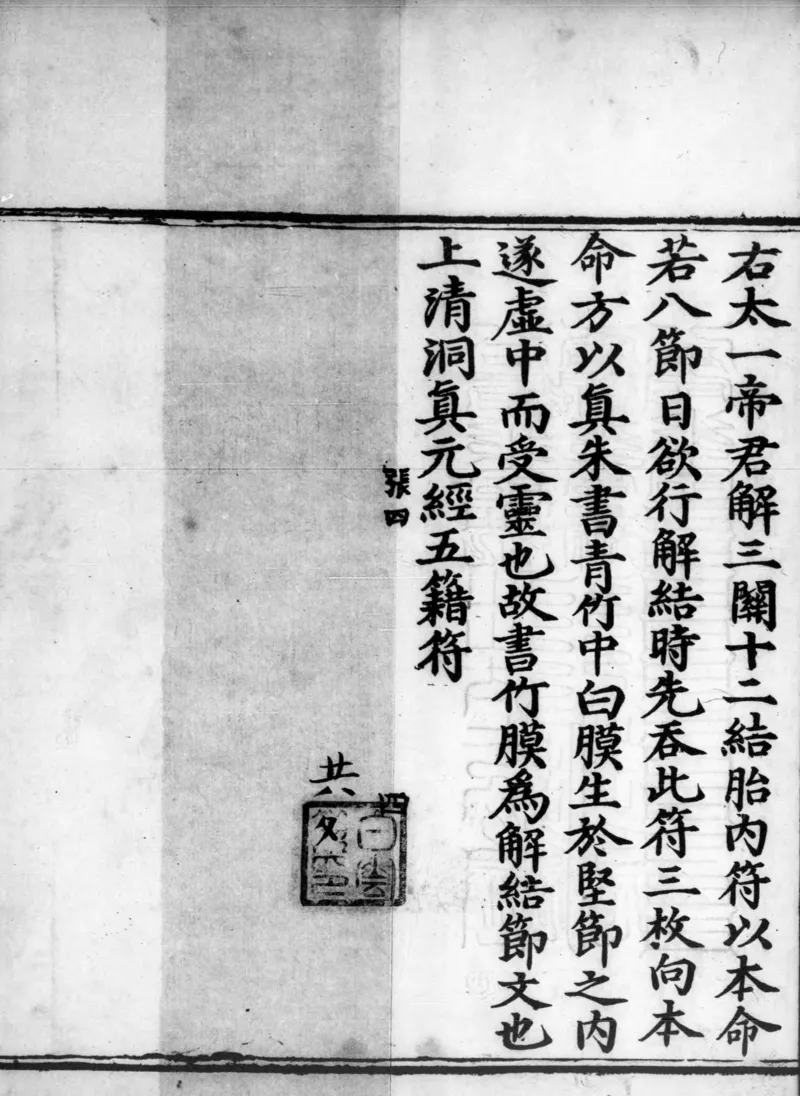 右太一帝君解三關十二結胎內符以本命
若八節日欲行解結時先吞此符三枚向本
命方以真朱書青竹中白膜生於堅節之內
遂虛中而受靈也故書竹膜為解結節文也
上清洞真元經五籍符
張四
共
四